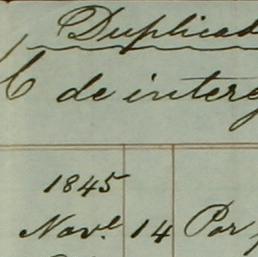 Duplicad
de intere
1845
Nov.e 14 Por